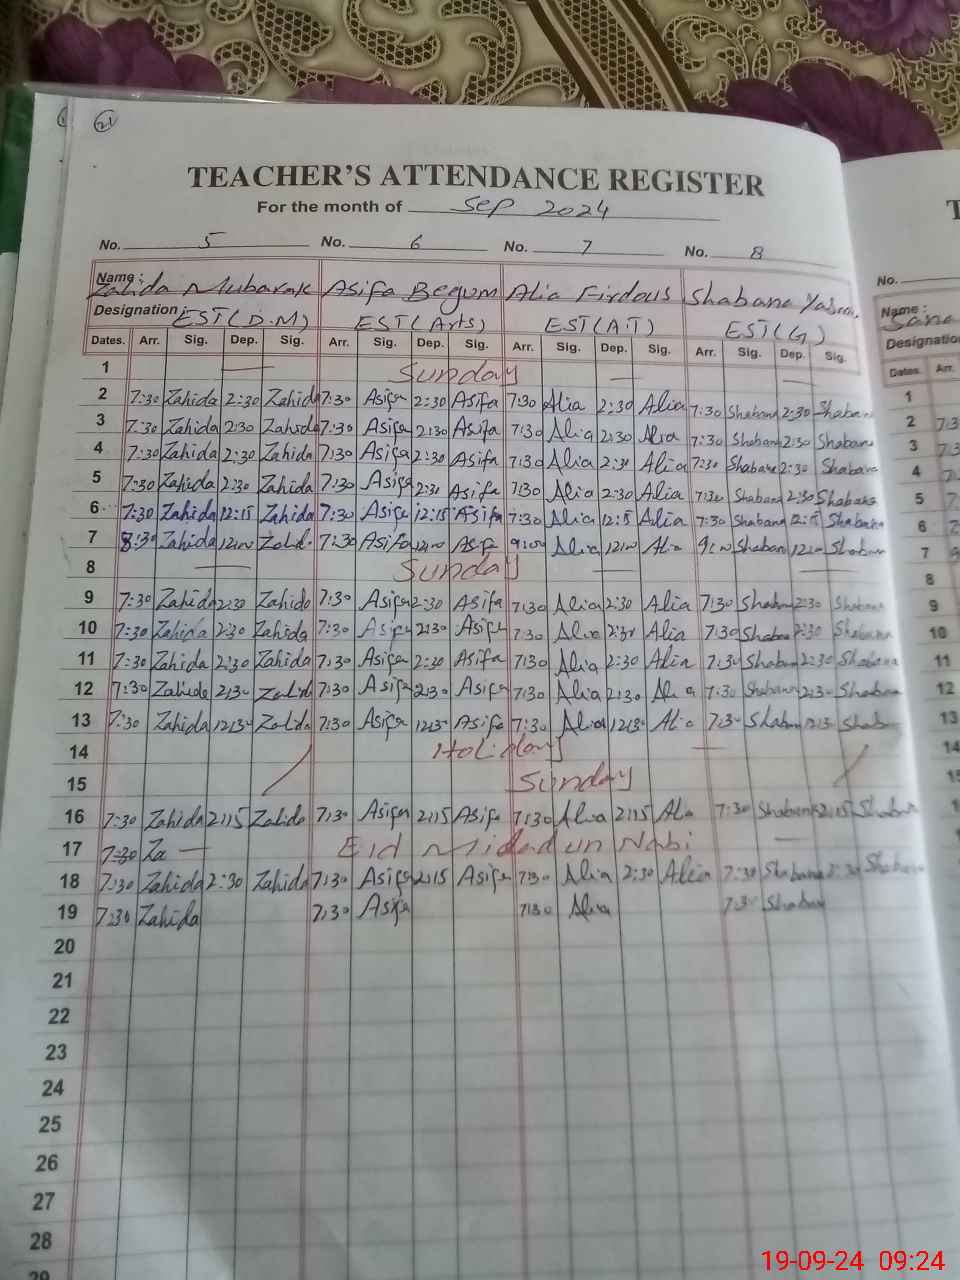 21
TEACHER'S ATTENDANCE REGISTER
For the month of Sep 2024
No. 5 No. 6 No. 7 No. 8
No.
Name: Zahida Mubarak Asifa Begum Alia Firdous Shabana
Name: Sana
Designation EST(D.M) EST(Arts) EST(A.T) EST(G)
Designation
Dates. Arr. Sig. Dep. Sig. Arr. Sig. Dep. Sig. Arr. Sig. Dep. Sig. Arr. Sig. Dep. Sig.
Dates. Arr.
1 Sunday
2 7:30 Zahida 2:30 Zahida 7:30 Asifa 2:30 Asifa 7:30 Alia 2:30 Alia 7:30 Shabana 2:30 Shabana
3 7:30 Zahida 2:30 Zahida 7:30 Asifa 2:30 Asifa 7:30 Alia 2:30 Alia 7:30 Shabana 2:30 Shabana
4 7:30 Zahida 2:30 Zahida 7:30 Asifa 2:30 Asifa 7:30 Alia 2:30 Alia 7:30 Shabana 2:30 Shabana
5 7:30 Zahida 2:30 Zahida 7:30 Asifa 2:30 Asifa 7:30 Alia 2:30 Alia 7:30 Shabana 2:30 Shabana
6 7:30 Zahida 12:15 Zahida 7:30 Asifa 12:15 Asifa 7:30 Alia 12:15 Alia 7:30 Shabana 12:15 Shabana
7 8:30 Zahida 12:00 Zahida 7:30 Asifa 12:00 Asifa 9:00 Alia 12:00 Alia 9:00 Shabana 12:00 Shabana
8 Sunday
9 7:30 Zahida 2:30 Zahida 7:30 Asifa 2:30 Asifa 7:30 Alia 2:30 Alia 7:30 Shabana 2:30 Shabana
10 7:30 Zahida 2:30 Zahida 7:30 Asifa 2:30 Asifa 7:30 Alia 2:30 Alia 7:30 Shabana 2:30 Shabana
11 7:30 Zahida 2:30 Zahida 7:30 Asifa 2:30 Asifa 7:30 Alia 2:30 Alia 7:30 Shabana 2:30 Shabana
12 7:30 Zahida 2:30 Zahida 7:30 Asifa 2:30 Asifa 7:30 Alia 2:30 Alia 7:30 Shabana 2:30 Shabana
13 7:30 Zahida 12:30 Zahida 7:30 Asifa 12:30 Asifa 7:30 Alia 12:30 Alia 7:30 Shabana 12:30 Shabana
14 Holiday
15 Sunday
16 7:30 Zahida 2:15 Zahida 7:30 Asifa 2:15 Asifa 7:30 Alia 2:15 Alia 7:30 Shabana 2:15 Shabana
17 7:30 Za Eid Milad un Nabi
18 7:30 Zahida 2:30 Zahida 7:30 Asifa 2:15 Asifa 7:30 Alia 2:30 Alia 7:30 Shabana 2:30 Shabana
19 7:30 Zahida 7:30 Asifa 7:30 Alia 7:30 Shabana
20
21
22
23
24
25
26
27
28
29
1
2
3
4
5
6
7
8
9
10
11
12
13
14
15
19-09-24 09:24